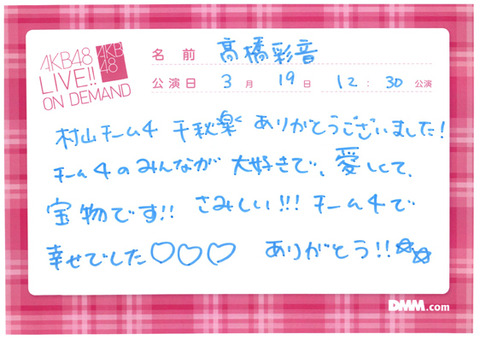 AKB48
LIVE!!
ON DEMAND
AKB
48
名前 髙橋彩音
公演日 3月19日 12:30公演
村山チーム4 千秋楽 ありがとうございました!
チーム4のみんなが 大好きで、愛しくて、
宝物です!! さみしい!!! チーム4で
幸せでした♡♡♡ ありがとう!!☆☆
DMM.com